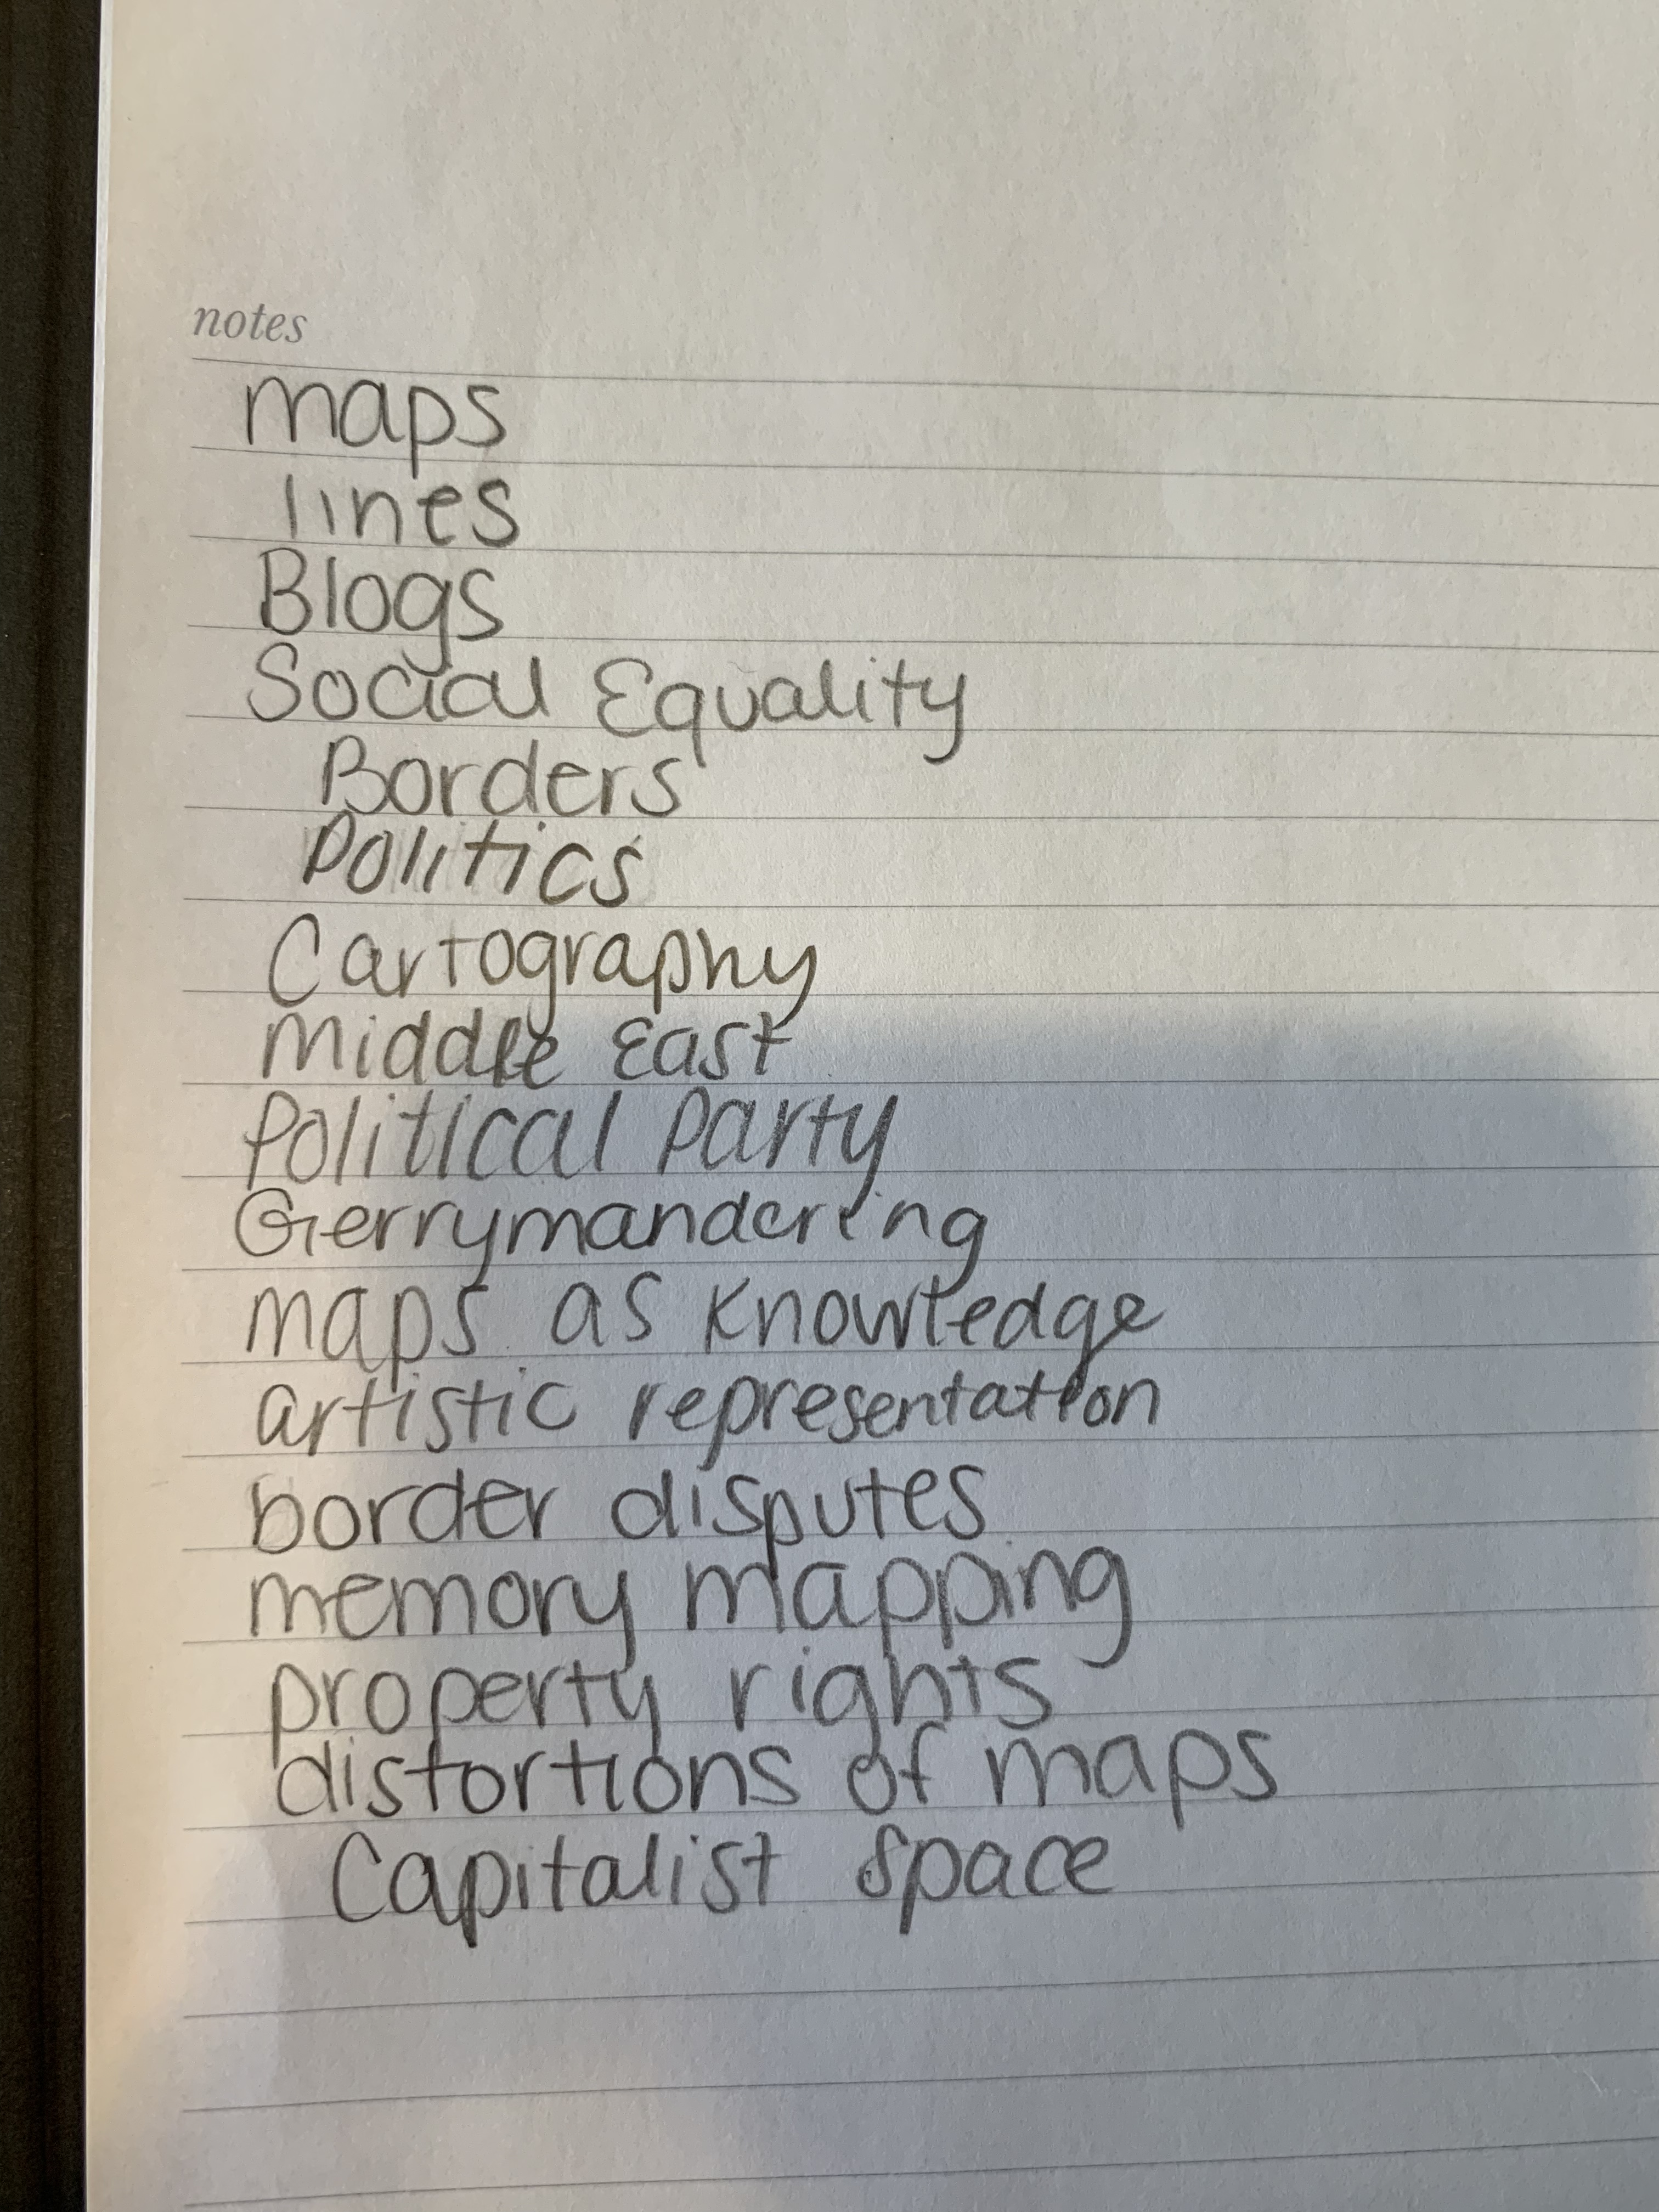 notes
maps
lines
Blogs
Social Equality
Borders
Politics
Cartography
Middle East
Political Party
Gerrymandering
maps as knowledge
artistic representation
border disputes
memory mapping
property rights
distortions of maps
Capitalist Space